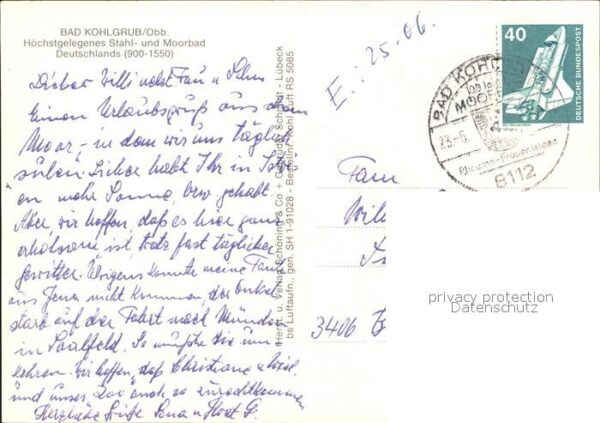 BAD KOHLGRUB/Obb.
Höchstgelegenes Stahl- und Moorbad
Deutschlands (900-1550)
E.: 25.06.
40
DEUTSCHE BUNDESPOST
BAD KOHL
MOO
23.-6.
Rheuma-Frauenleiden
8112
Lieber Willi nebst Frau u. Sohn
Einen Urlaubsgruß aus dem
Moor - in dem wir uns täglich
suhlen. Sicher habt Ihr in
en mehr Sonne, bzw. gehabt.
Aber, wir hoffen, daß es hier ganz
erholsam ist, trotz fast täglicher
Gewitter. Übrigens konnte meine Tante
aus Jena nicht kommen, der Onkel
starb auf der Fahrt nach München
in Saalfeld. So mußte sie um-
kehren. Wir hoffen, daß Christiane u.
und unser Zoo auch so zurechtkommen
Herzliche Grüße u. Horst G.
Hersg. u. Verlag Schöning & Co + Gebrüder Schmidt - Lübeck
bs Luftaufn., gen. SH 1-91028 - Bestellnr. Kohl Luft RS 5085
Fam
Wil
3406
privacy protection
Datenschutz